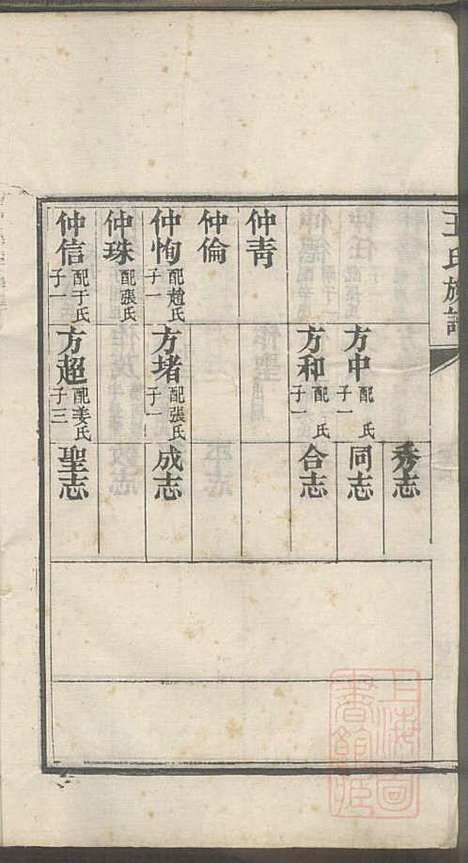 王氏族譜
秀志
方中 配 氏 子一 同志
方和 配 氏 子一 合志
仲靑
仲倫
仲恂 配趙氏 子一 方堵 配張氏 子一 成志
仲珠 配張氏
仲信 配于氏 子一 方超 配姜氏 子三 聖志
上海圖書館藏